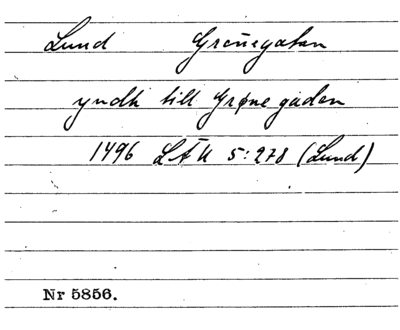 Lund Grönegatan
yndh till Grøne gaden
1496 LÄU 5:278 (Lund)
Nr 5856.